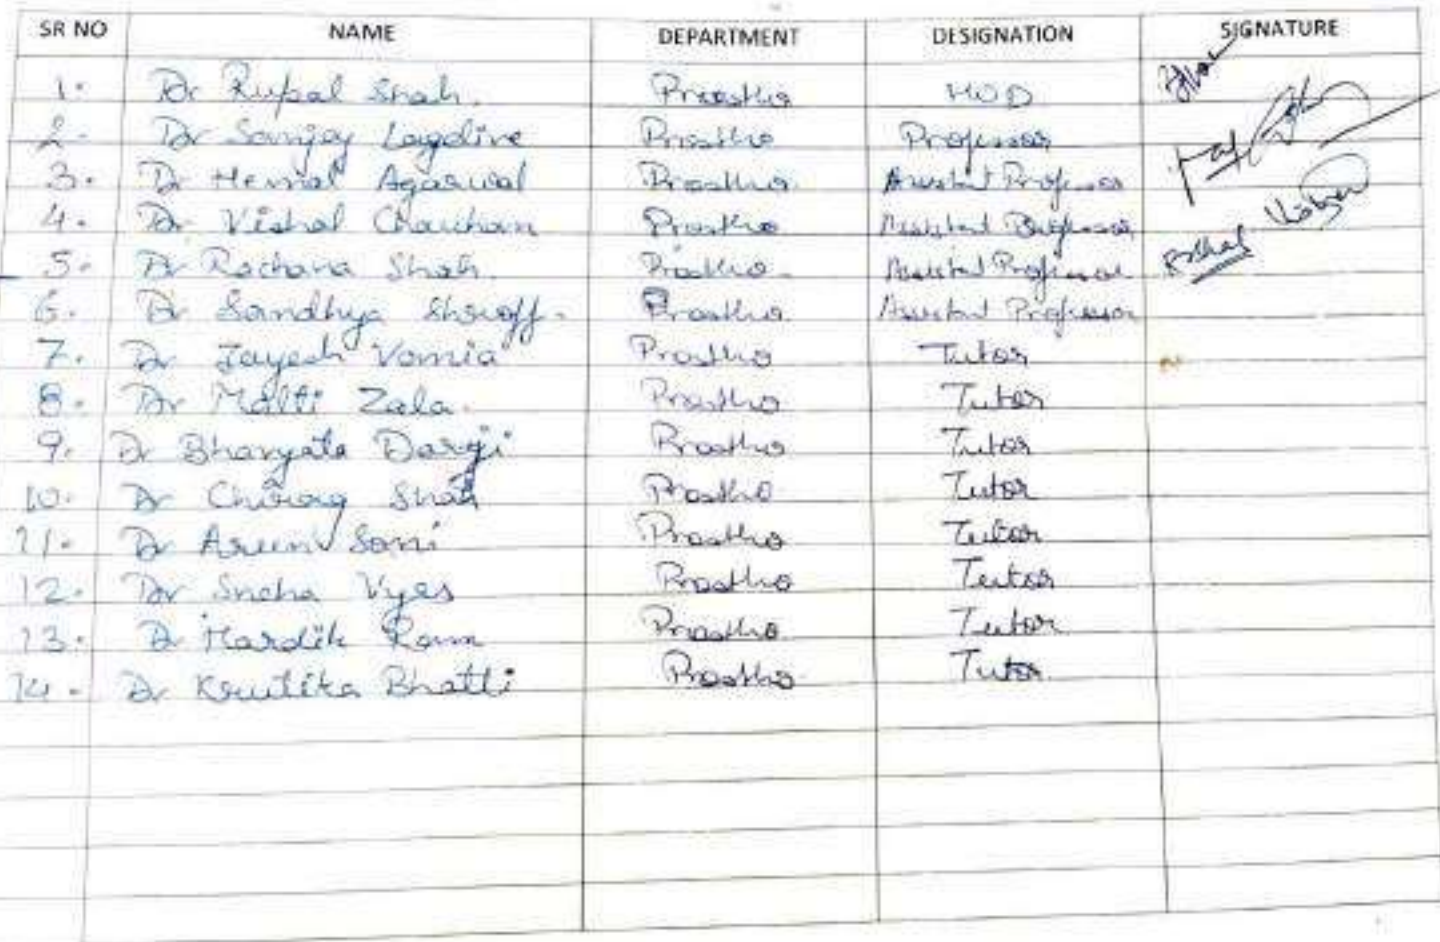 SR NO NAME DEPARTMENT DESIGNATION SIGNATURE
1. Dr Rupal Shah. Prostho HOD
2. Dr Sanjay Lagdive Prostho Professor
3. Dr Hemal Agarwal Prostho. Assistant Professor
4. Dr Vishal Chauhan Prostho Assistant Professor
5. Dr Rachana Shah. Prostho. Assistant Professor
6. Dr Sandhya Shroff. Prostho. Assistant Professor
7. Dr Jayesh Vamia Prostho Tutor
8. Dr Malti Zala. Prostho Tutor
9. Dr Bhavyata Darji Prostho Tutor
10. Dr Chirag Shah Prostho Tutor
11. Dr Arun Soni Prostho Tutor
12. Dr Sneha Vyas Prostho Tutor
13. Dr Hardik Ram Prostho Tutor
14. Dr Krutika Bhatti Prostho Tutor